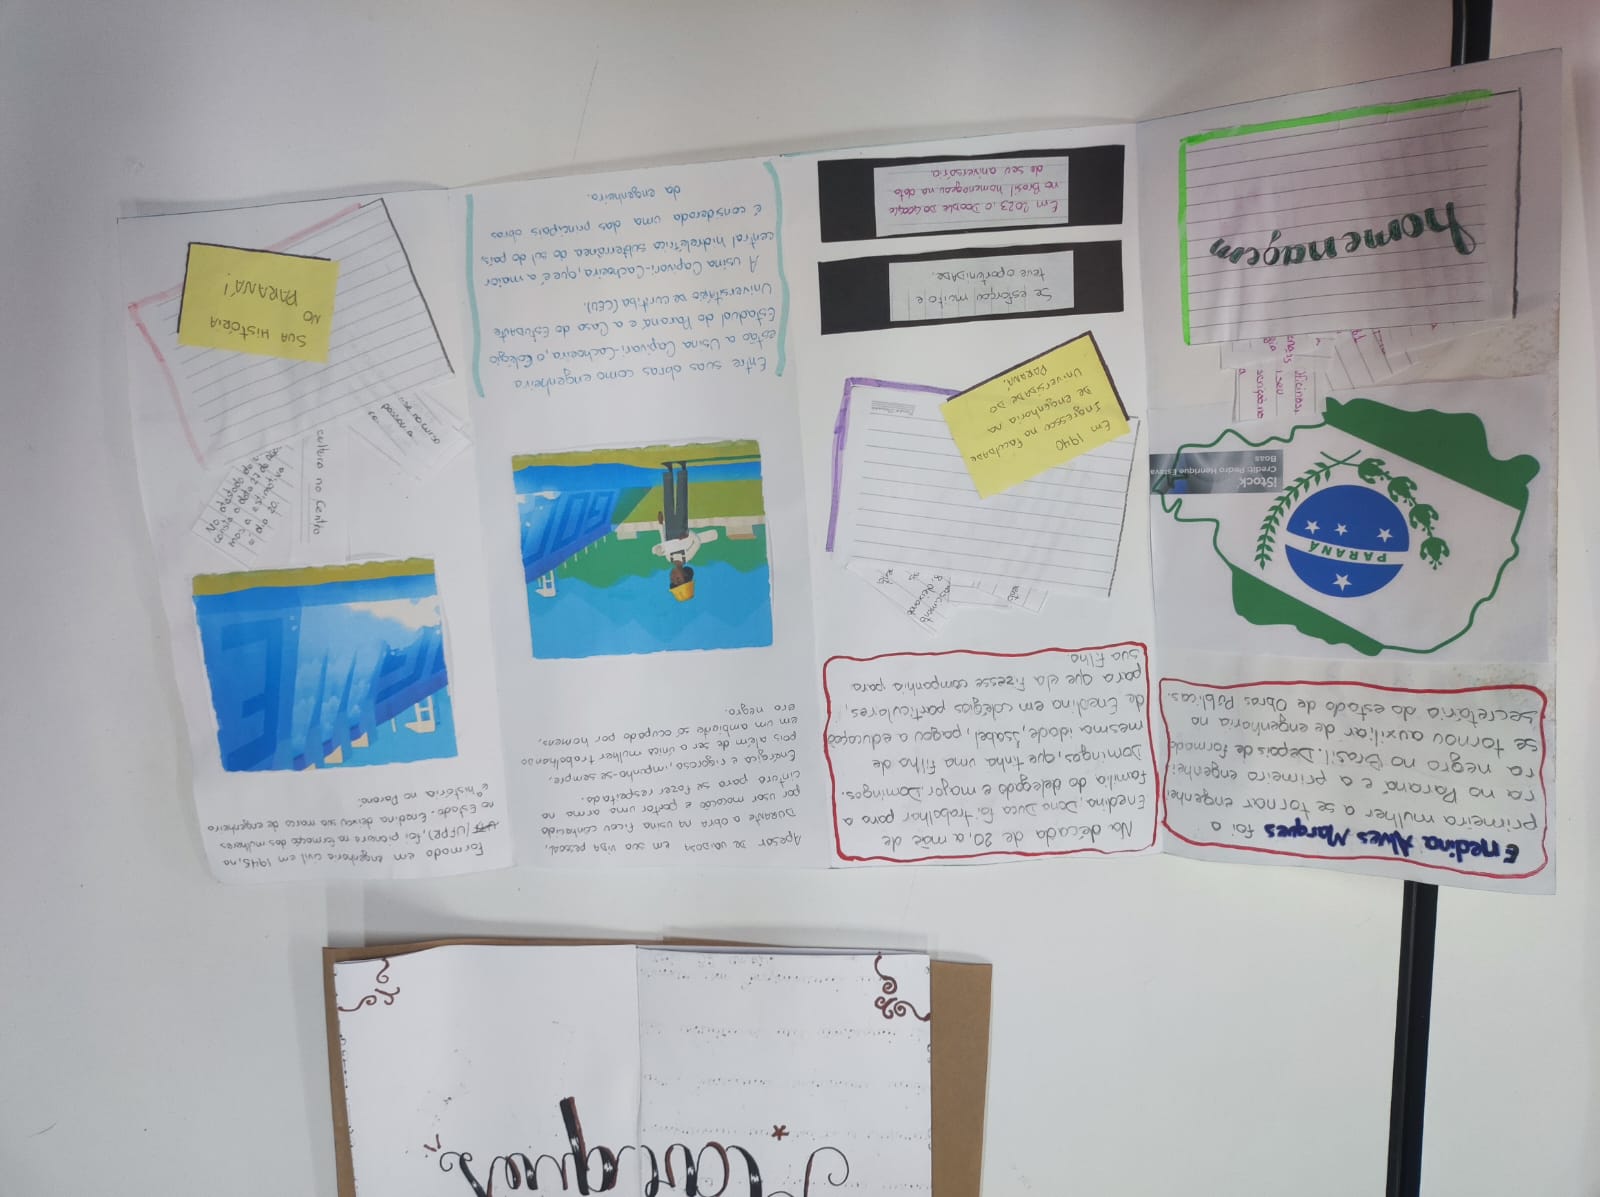 Marques
Enedina Alves Marques foi a
primeira mulher a se tornar engenhei
ra no Paraná e a primeira engenhei
ra negra no Brasil. Depois de formada
se tornou auxiliar de engenharia na
secretária do estado de Obras Públicas.
PARANÁ
iStock
Credit: Pedro Henrique Esteva
Boas
homenagem
Na década de 20, a mãe de
Enedina, Dona Duca foi trabalhar para a
familia do delegado e major, Domingos.
Domingos, que tinha uma filha de
mesma idade, Isabel, pagou a educação
de Enedina em colégios particulares,
para que ela fizesse companhia para
sua filha.
nascimento
deixando
Em 1940
Ingressou na faculdade
de engenharia na
Universidade do
PARANÁ.
Se esforçou muito e
teve oportunidade.
Em 2023, o Dooble do Google
no Brasil homenageou na data
do seu aniversária
Apesar de vaidosa em sua vida pessoal,
durante a obra na usina ficou conhecida
por usar macacão e portar uma arma na
cintura para se fazer respeitada.
Enérgica e rigorosa, impunha-se sempre,
pois além de ser a única mulher trabalhando
em um ambiente só ocupado por homens,
era negra.
GOO
Entre suas obras como engenheira
estão a Usina Capivari-Cachoeira, o Colégio
Estadual do Paraná e a Casa do Estudante
Universitário de curitiba (CEU).
A usina Capivari-Cachoeira, que é a maior
central hidrelétrica subterrânea do sul do país,
é considerada uma das principais obras
da engenheira.
Formada em engenharia civil em 1945, na
/UFPR), foi pioneira na formação das mulheres
no Estado. Enedina deixou sua marca de engenheira
e a história no Paraná.
cultura no Cento
SUA HISTÓRIA
NO
PARANÁ!